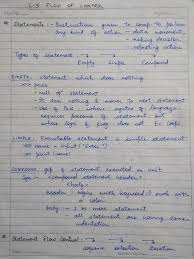 L-5 FLOW OF CONTROL
Statements :- Instructions given to comp to perform
any kind of action - data movement,
- making decision,
- repeating action
Types of statement - →
Empty Simple Compound
EMPTY: statement which does nothing
>>> pass
→ null statement
→ do nothing & moves to next statement
→ Use of - where syntax of language
requires presence of statement but
where logic of prog does not
SIMPLE: Executable statement is simple statement
→ name = input ("Enter")
→ print (name)
COMPOUND: grp of statement executed as unit
<compound statement header> :
<body>
header - begins with keyword & ends with
a colon
body - 1 or more statement
all statement are having same
indentation
Statement Flow Control -
sequence selection iteration